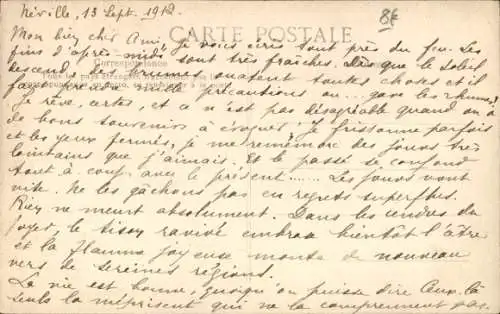 Néville, 13 Sept. 1912.
8f
CARTE POSTALE
Mon bien cher Ami, Je vous écris tout près du feu. Les
fins d'après-midi sont très fraîches. Dès que le soleil
Correspondance
descend, les brumes ouatent toutes choses et il
Tous les pays étrangers
faut prendre mille précautions ou... gare les rhumes!
Je rêve, certes, et ce n'est pas désagréable quand on a
de bons souvenirs à évoquer. Je frissonne parfois
et les yeux fermés, je me remémore des jours très
lointains que j'aimais. Et le passé se confond
tout à coup avec le présent...... Les jours vont
vite. Ne les gâchons pas en regrets superflus.
Rien ne meurt absolument. Dans les cendres du
foyer, le tison ravivé embrase bientôt l'âtre
et la flamme joyeuse monte de nouveau
vers de sereines régions.
La vie est bonne, quoiqu'on puisse dire. Ceux-là
seuls la méprisent qui ne la comprennent pas.